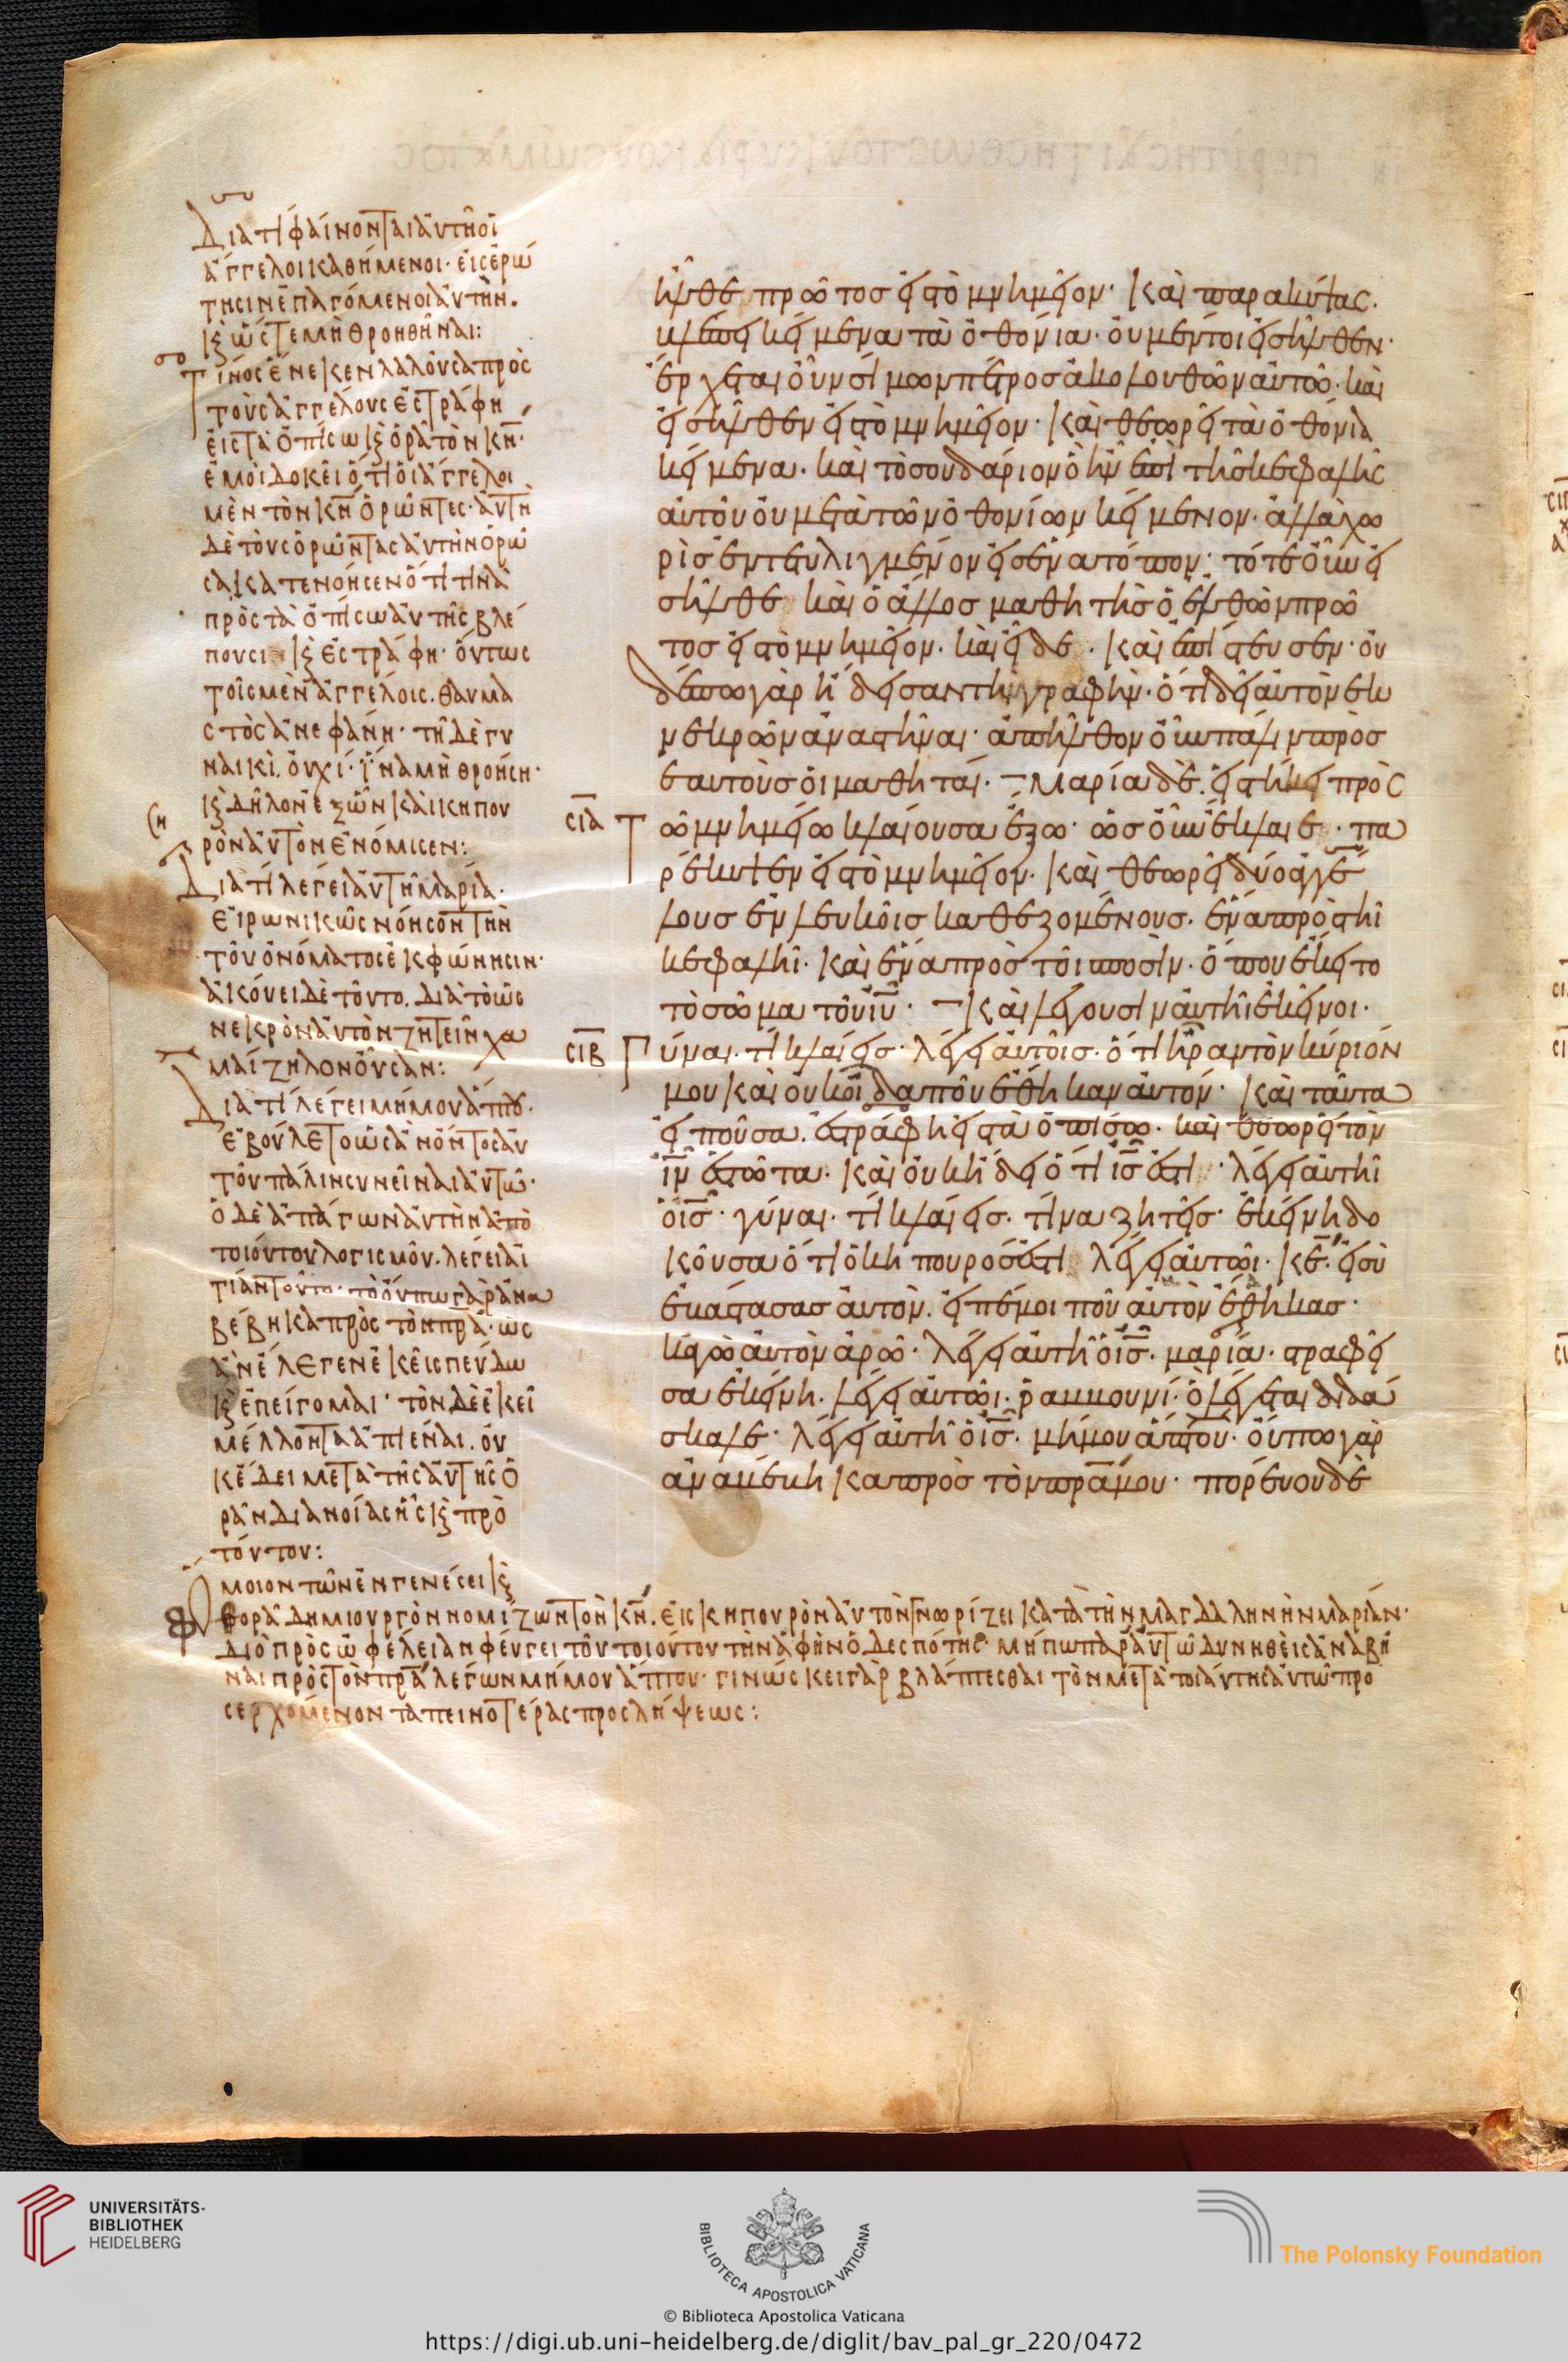 Διατί φαίνονται αὐτῆ οἱ
ἄγγελοι καθήμενοι· εἰς ἐρώ
τησιν ἐπαγόμενοι αὐτὴν·
κ ὥστε μὴ θροηθῆναι:
Τίνος ἕνεκεν λαλοῦσα πρὸς
τοὺς ἀγγέλους ἐστράφη
εἰς τὰ ὀπίσω κ ὁρᾶ τὸν κν·
ἐμοὶ δοκεῖ ὅτι οἱ ἄγγελοι
μὲν τὸν κν ὁρῶντες· αὐτὴ
δὲ τοὺς ὁρῶντας αὐτὴν ὁρῶ
σα κατενόησεν ὅτι τινὰ
πρὸς τὰ ὀπίσω αὐτῆς βλέ
πουσι κ ἐστράφη· ὄντως
τοῖς μὲν ἀγγέλοις. θαυμα
στὸς ἀνεφάνη· τῆ δὲ γυ
ναικὶ. οὐχί· ἵνα μὴ θροήση·
κ δῆλον ἐξ ὧν καὶ κηπου
ρὸν αὐτὸν ἐνόμισεν:
Διατί λέγει αὐτῆ μαρία·
εἰρωνικῶς νόησον τὴν
τοῦ ὀνόματος ἐκφώνησιν·
ἀκούει δὲ τοῦτο. διὰ τὸ ὡς
νεκρὸν αὐτὸν ζητεῖν χα
μαίζηλον οὖσαν:
Διατί λέγει μή μου ἅπτου·
ἐβούλετο ὡς ἂν ὄντος αὐ
τοῦ πάλιν συνεῖναι αὐτῶ·
ὁ δὲ ἀπάγων αὐτὴν ἀπὸ
τοιούτου λογισμοῦ. λέγει αἰ
τίαν τοῦτο· τὸ οὔπω γὰρ ἀνα
βέβηκα πρὸς τὸν πρα· ὡς
ἂν ἔλεγεν ἐκεῖ σπεύδω
κ ἐπείγομαι· τὸν δὲ ἐκεῖ
μέλλοντα ἀπιέναι. οὐ
κ ἔδει μετὰ τῆς αὐτῆς ὁ
ρᾶν διανοίας ἧς κ πρὸ
τούτου:
Ὅμοιον τῶν ἐν γενέσει κ
θορᾶ δημιουργὸν νομίζων τὸν κν. εἰς κηπουρὸν αὐτὸν γνωρίζει κατὰ τὴν μαγδαληνὴν μαρίαν·
διὸ πρὸς ὠφέλειαν φεύγει τοῦ τοιούτου τὴν ἀφὴν ὁ δεσπότης· μήπω παρ αὐτῶ δυνηθεὶς ἀναβῆ
ναι πρὸς τὸν πρα λέγων μή μου ἅπτου· γινώσκει γὰρ βλάπτεσθαι τὸν μετὰ τοιαύτης αὐτῶ προ
σερχόμενον ταπεινοτέρας προσλήψεως:
ἦλθε πρῶτος εἰς τὸ μνημεῖον· καὶ παρακύψας·
βλέπει κείμενα τὰ ὀθόνια· οὐ μέντοι εἰσῆλθεν·
ἔρχεται οὖν σίμων πέτρος ἀκολουθῶν αὐτῶ· καὶ
εἰσῆλθεν εἰς τὸ μνημεῖον· καὶ θεωρεῖ τὰ ὀθόνια
κείμενα· καὶ τὸ σουδάριον ὃ ἦν ἐπὶ τῆς κεφαλῆς
αὐτοῦ οὐ μετὰ τῶν ὀθονίων κείμενον· ἀλλὰ χω
ρὶς ἐντετυλιγμένον εἰς ἕνα τόπον· τότε οὖν εἰ
σῆλθε καὶ ὁ ἄλλος μαθητὴς ὁ ἐλθὼν πρῶ
τος εἰς τὸ μνημεῖον· καὶ εἶδε· καὶ ἐπίστευσεν· οὐ
δέπω γὰρ ἤδεισαν τὴν γραφὴν· ὅτι δεῖ αὐτὸν ἐκ
νεκρῶν ἀναστῆναι· ἀπῆλθον οὖν πάλιν πρὸς
ἑαυτοὺς οἱ μαθηταί· Μαρία δὲ. εἱστήκει πρὸς
σια Τῶ μνημείω κλαίουσα ἔξω· ὡς οὖν ἔκλαιε· πα
ρέκυψεν εἰς τὸ μνημεῖον· καὶ θεωρεῖ δύο ἀγγέ
λους ἐν λευκοῖς καθεζομένους· ἕνα πρὸς τῆ
κεφαλῆ· καὶ ἕνα πρὸς τοῖ ποσὶν· ὅπου ἔκειτο
τὸ σῶμα τοῦ ιυ· Καὶ λέγουσιν αὐτῆ ἐκεῖνοι·
σιβ Γύναι· τί κλαίεις· λέγει αὐτοῖς· ὅτι ἦραν τὸν κύριόν
μου καὶ οὐκ οἶδα ποῦ ἔθηκαν αὐτόν· καὶ ταῦτα
εἰποῦσα. ἐστράφη εἰς τὰ ὀπίσω· καὶ θεωρεῖ τὸν
ιν ἑστῶτα· καὶ οὐκ ἤδει ὅτι ις ἐστι· λέγει αὐτῆ
ὁ ις· γύναι· τί κλαίεις· τίνα ζητεῖς· ἐκείνη δο
κοῦσα ὅτι ὁ κηπουρός ἐστι λέγει αὐτῶι· κε· εἰ σὺ
ἐβάστασας αὐτὸν· εἰπέ μοι ποῦ αὐτὸν ἔθηκας·
κἀγὼ αὐτὸν ἀρῶ· λέγει αὐτῆ ὁ ις· μαρία· στραφεῖ
σα ἐκείνη· λέγει αὐτῶι· ῥαββουνί· ὃ λέγεται διδά
σκαλε· λέγει αὐτῆ ὁ ις· μή μου ἅπτου· οὔπω γὰρ
ἀναβέβηκα πρὸς τὸν πρα μου· πορεύου δὲ
UNIVERSITÄTS-
BIBLIOTHEK
HEIDELBERG
BIBLIOTECA APOSTOLICA VATICANA
The Polonsky Foundation
© Biblioteca Apostolica Vaticana
https://digi.ub.uni-heidelberg.de/diglit/bav_pal_gr_220/0472